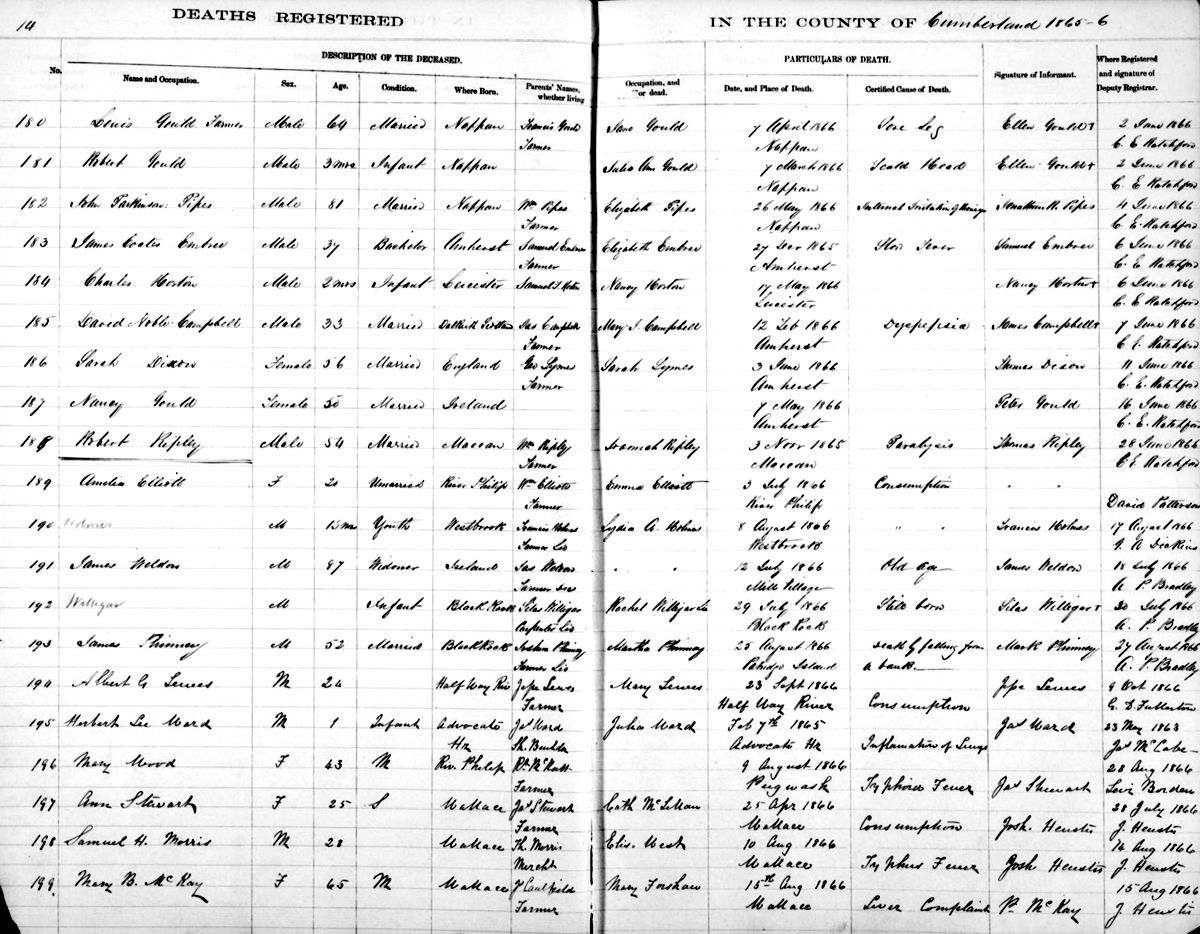 14
DEATHS REGISTERED IN THE COUNTY OF Cumberland 1865-6
DESCRIPTION OF THE DECEASED. PARTICULARS OF DEATH.
No. Name and Occupation. Sex. Age. Condition. Where Born. Parents' Names, whether living or dead. Occupation, and Date, and Place of Death. Certified Cause of Death. Signature of Informant. Where Registered and signature of Deputy Registrar.
180 Louis Gould Farmer Male 64 Married Nappan Francis Gould Jane Gould 7 April 1866 Sore Leg Ellen Gould 2 June 1866
Farmer Nappan C. E. Ratchford
181 Robert Gould Male 3 mos Infant Nappan Julia Ann Gould 7 March 1866 Scald Head Ellen Gould 2 June 1866
Nappan C. E. Ratchford
182 John Parkinson Pipes Male 81 Married Nappan Wm Pipes Elizabeth Pipes 26 May 1866 Internal Irritation Jonathan R. Pipes 4 June 1866
Farmer Nappan C. E. Ratchford
183 James Coates Embree Male 37 Bachelor Amherst Samuel Embree Elizabeth Embree 27 Dec 1865 Slow Fever Samuel Embree 6 June 1866
Farmer Amherst C. E. Ratchford
184 Charles Horton Male 2 mos Infant Leicester Samuel Horton Nancy Horton 17 May 1866 Nancy Horton 6 June 1866
Leicester C. E. Ratchford
185 David Noble Campbell Male 33 Married Dalkeith Scotland Jas Campbell Mary J. Campbell 12 Feb 1866 Dyspepsia James Campbell 7 June 1866
Farmer Amherst C. E. Ratchford
186 Sarah Dixon Female 56 Married England Geo Symes Sarah Symes 3 June 1866 Thomas Dixon 11 June 1866
Farmer Amherst C. E. Ratchford
187 Nancy Gould Female 50 Married Ireland 7 May 1866 Peter Gould 16 June 1866
Amherst C. E. Ratchford
188 Robert Ripley Male 54 Married Maccan Wm Ripley Ripley 3 Novr 1865 Paralysis Thomas Ripley 28 June 1866
Farmer Maccan C. E. Ratchford
189 Amelia Elliott F 20 Unmarried River Philip Wm Elliott Emma Elliott 3 July 1866 Consumption " "
Farmer River Philip David Patterson
190 Holmes M 15 mos Youth Westbrook Francis Holmes Lydia A. Holmes 8 August 1866 " " Francis Holmes 17 August 1866
Farmer Liv Westbrook A Dickins
191 James Weldon M 87 Widower Ireland Jas Weldon " " 12 July 1866 Old Age James Weldon 18 July 1866
Farmer Dec Mill Village A. P. Bradley
192 Willigar M Infant Black Rock Silas Willigar Rachel Willigar Liv 29 July 1866 Still born Silas Willigar 30 July 1866
Carpenter Liv Black Rock A. P. Bradley
193 James Phinney M 52 Married Black Rock Joshua Phinney Martha Phinney 25 August 1866 Death by falling from Mark Phinney 27 August 1866
Farmer Liv Partridge Island a bank A. P. Bradley
194 Albert G Lewes M 24 Half Way Riv Jesse Lewes Mary Lewes 23 Sept 1866 Jesse Lewes 9 Oct 1866
Farmer Half Way River Consumption G. D. Fullerton
195 Herbert Lee Ward M 1 Infant Advocate Jas Ward Julia Ward Feb 7th 1865 Jas Ward 23 May 1863
Hr Sh. Builder Advocate Hr Inflamation of Lungs Jas McCabe
196 Mary Wood F 43 M Riv. Philip Rt McNutt 9 August 1866 28 Aug 1866
Farmer Pugwash Typhoid Fever Jas Stewart Levi Borden
197 Ann Stewart F 25 S Wallace Jas Stewart Cath McLellan 25 Apr 1866 28 July 1866
Farmer Wallace Consumption Josh. Heustis J. Heustis
198 Samuel H. Morris M 28 Wallace Th. Morris Elis. West 10 Aug 1866 14 Aug 1866
Mercht Wallace Typhus Fever Josh Heustis J. Heustis
199. Mary B. McKay F 65 M Wallace J Caulfield Mary Forshaw 15th Aug 1866 15 Aug 1866
Farmer Wallace Liver Complaint P. McKay J. Heustis